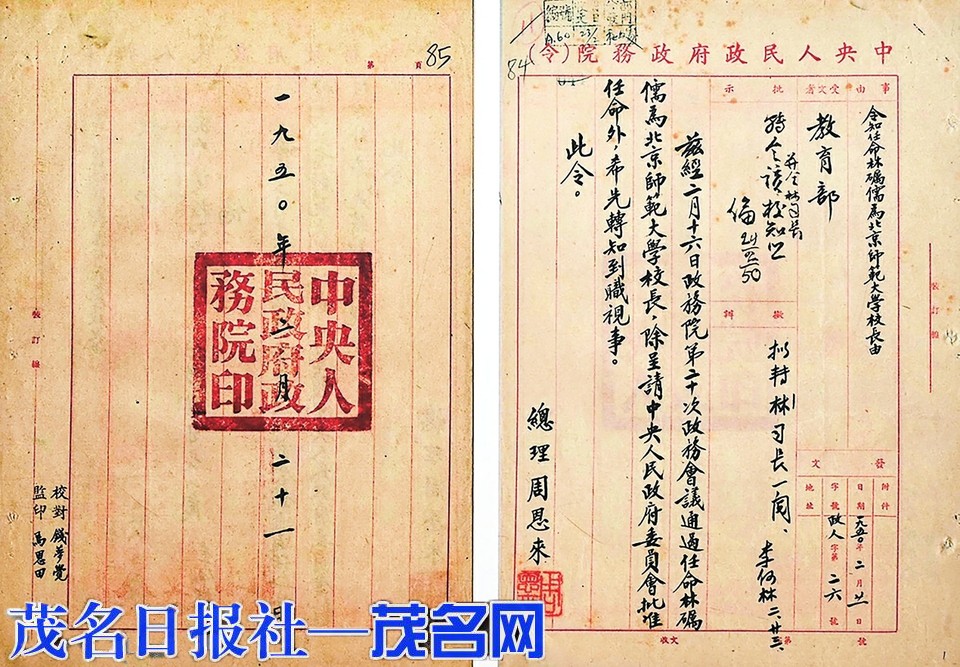 中央人民政府政務院(令)
84
事由
令知任命林礪儒為北京師範大學校長由
受文者
教育部
批示
轉令該校知照
并令林司長
24/2/50
擬辦
擬轉林司長一閱、
李何林 二、廿三、
發文
附件
日期
一九五〇年二月廿一日
字號
政人字第二六號
地址
茲經二月十六日政務院第二十次政務會議通過任命林礪
儒為北京師範大學校長，除呈請中央人民政府委員會批准
任命外，希先轉知到職視事。
此令。
總理周恩來
收文第 號
裝訂線
第 頁
85
一九五〇年二月二十一日
中央人民政府政務院印
校對
錢夢覺
監印
馬恩田
裝訂線
茂名日报社—茂名网